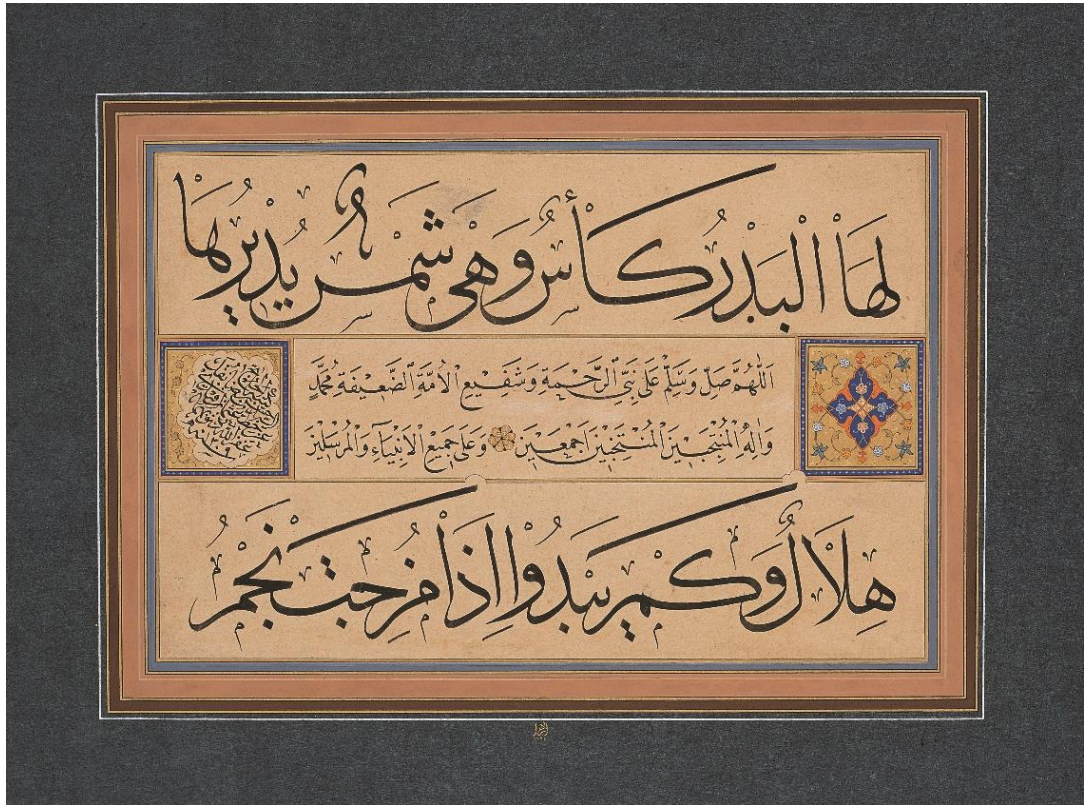 لَهَا الْبَدْرُ كَأْسٌ وَهْىَ شَمْسٌ يُدِيْرُهَا
اَللّٰهُمَّ صَلِّ وَسَلِّمْ عَلٰى نَبِىِّ الرَّحْمَةِ وَشَفِيعِ الْاُمَّةِ الضَّعِيفَةِ مُحَمَّدٍ
وَاٰلِهِ الْمُنْتَجَبِينَ الْمُنْتَخَبِينَ اَجْمَعِينَ وَعَلٰى جَمِيعِ الْاَنْبِيَاءِ وَالْمُرْسَلِينَ
هِلَالٌ وَكَمْ يَبْدُوا اِذَا مُزِجَتْ نَجْمُ